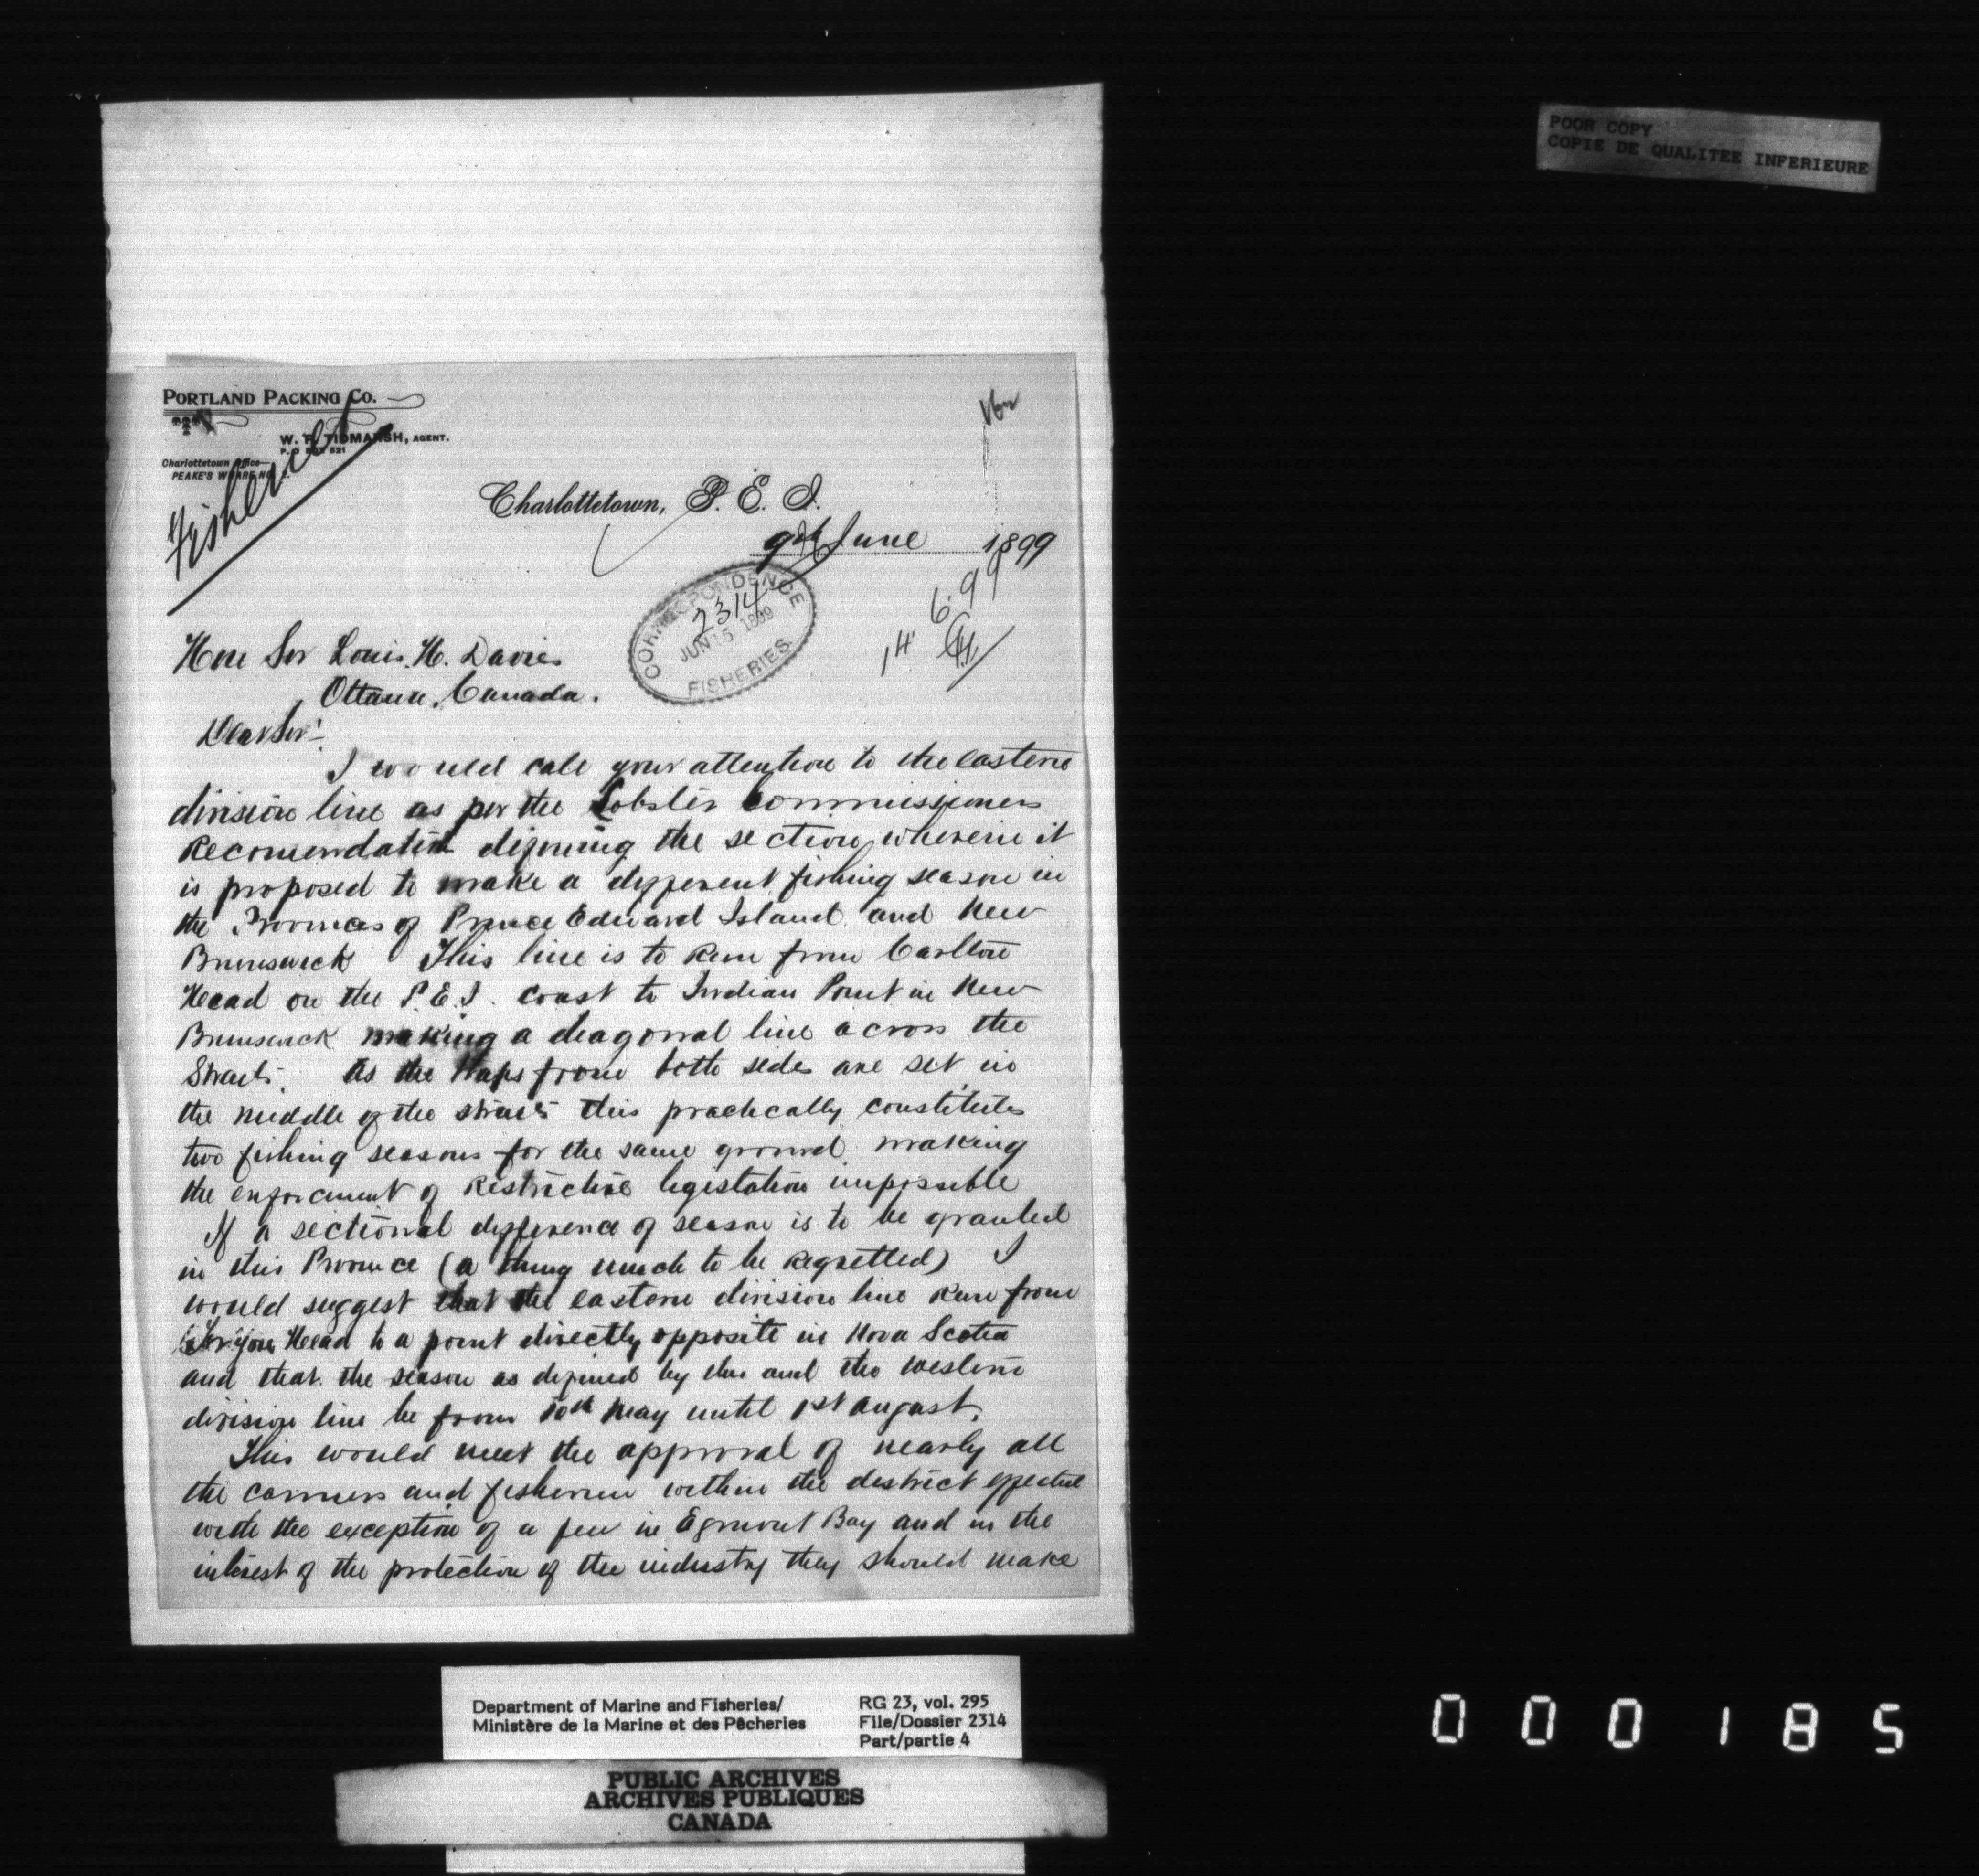 POOR COPY
COPIE DE QUALITEE INFERIEURE
PORTLAND PACKING CO.
W. F. TIDMARSH, AGENT.
P.O BOX 521
Charlottetown Office—
PEAKE'S WHARF NO
Fisheries
Charlottetown, P. E. I.
9th June 1899
CORRESPONDENCE
2314
JUN 15 1899
FISHERIES.
14 6. 99
Hon Sir Louis. H. Davies
Ottawa, Canada.
Dear Sir:-
I would call your attention to the eastern
division line as per the Lobster Commissioners
Recomendation defining the section wherein it
is proposed to make a different fishing season in
the Provinces of Prince Edward Island and New
Brunswick This line is to Run from Carlton
Head on the P.E.I. coast to Indian Point in New
Brunswick making a diagonal line across the
Straits. As the traps from both sides are set in
the middle of the straits this practically constitutes
two fishing seasons for the same ground making
the enforcment of Restrictive legistation impossible
If a sectional difference of season is to be granted
in this Province (a thing much to be Regretted) I
would suggest that the eastern division line Run from
Head to a point directly opposite in Nova Scotia
and that the season as defined by this and the western
division line be from 10th May until 1st August.
This would meet the approval of nearly all
the canners and fishermen within the district effected
with the exception of a few in Egmont Bay and in the
interest of the protection of the industry they should make
Department of Marine and Fisheries/
Ministère de la Marine et des Pêcheries
RG 23, vol. 295
File/Dossier 2314
Part/partie 4
PUBLIC ARCHIVES
ARCHIVES PUBLIQUES
CANADA
000185